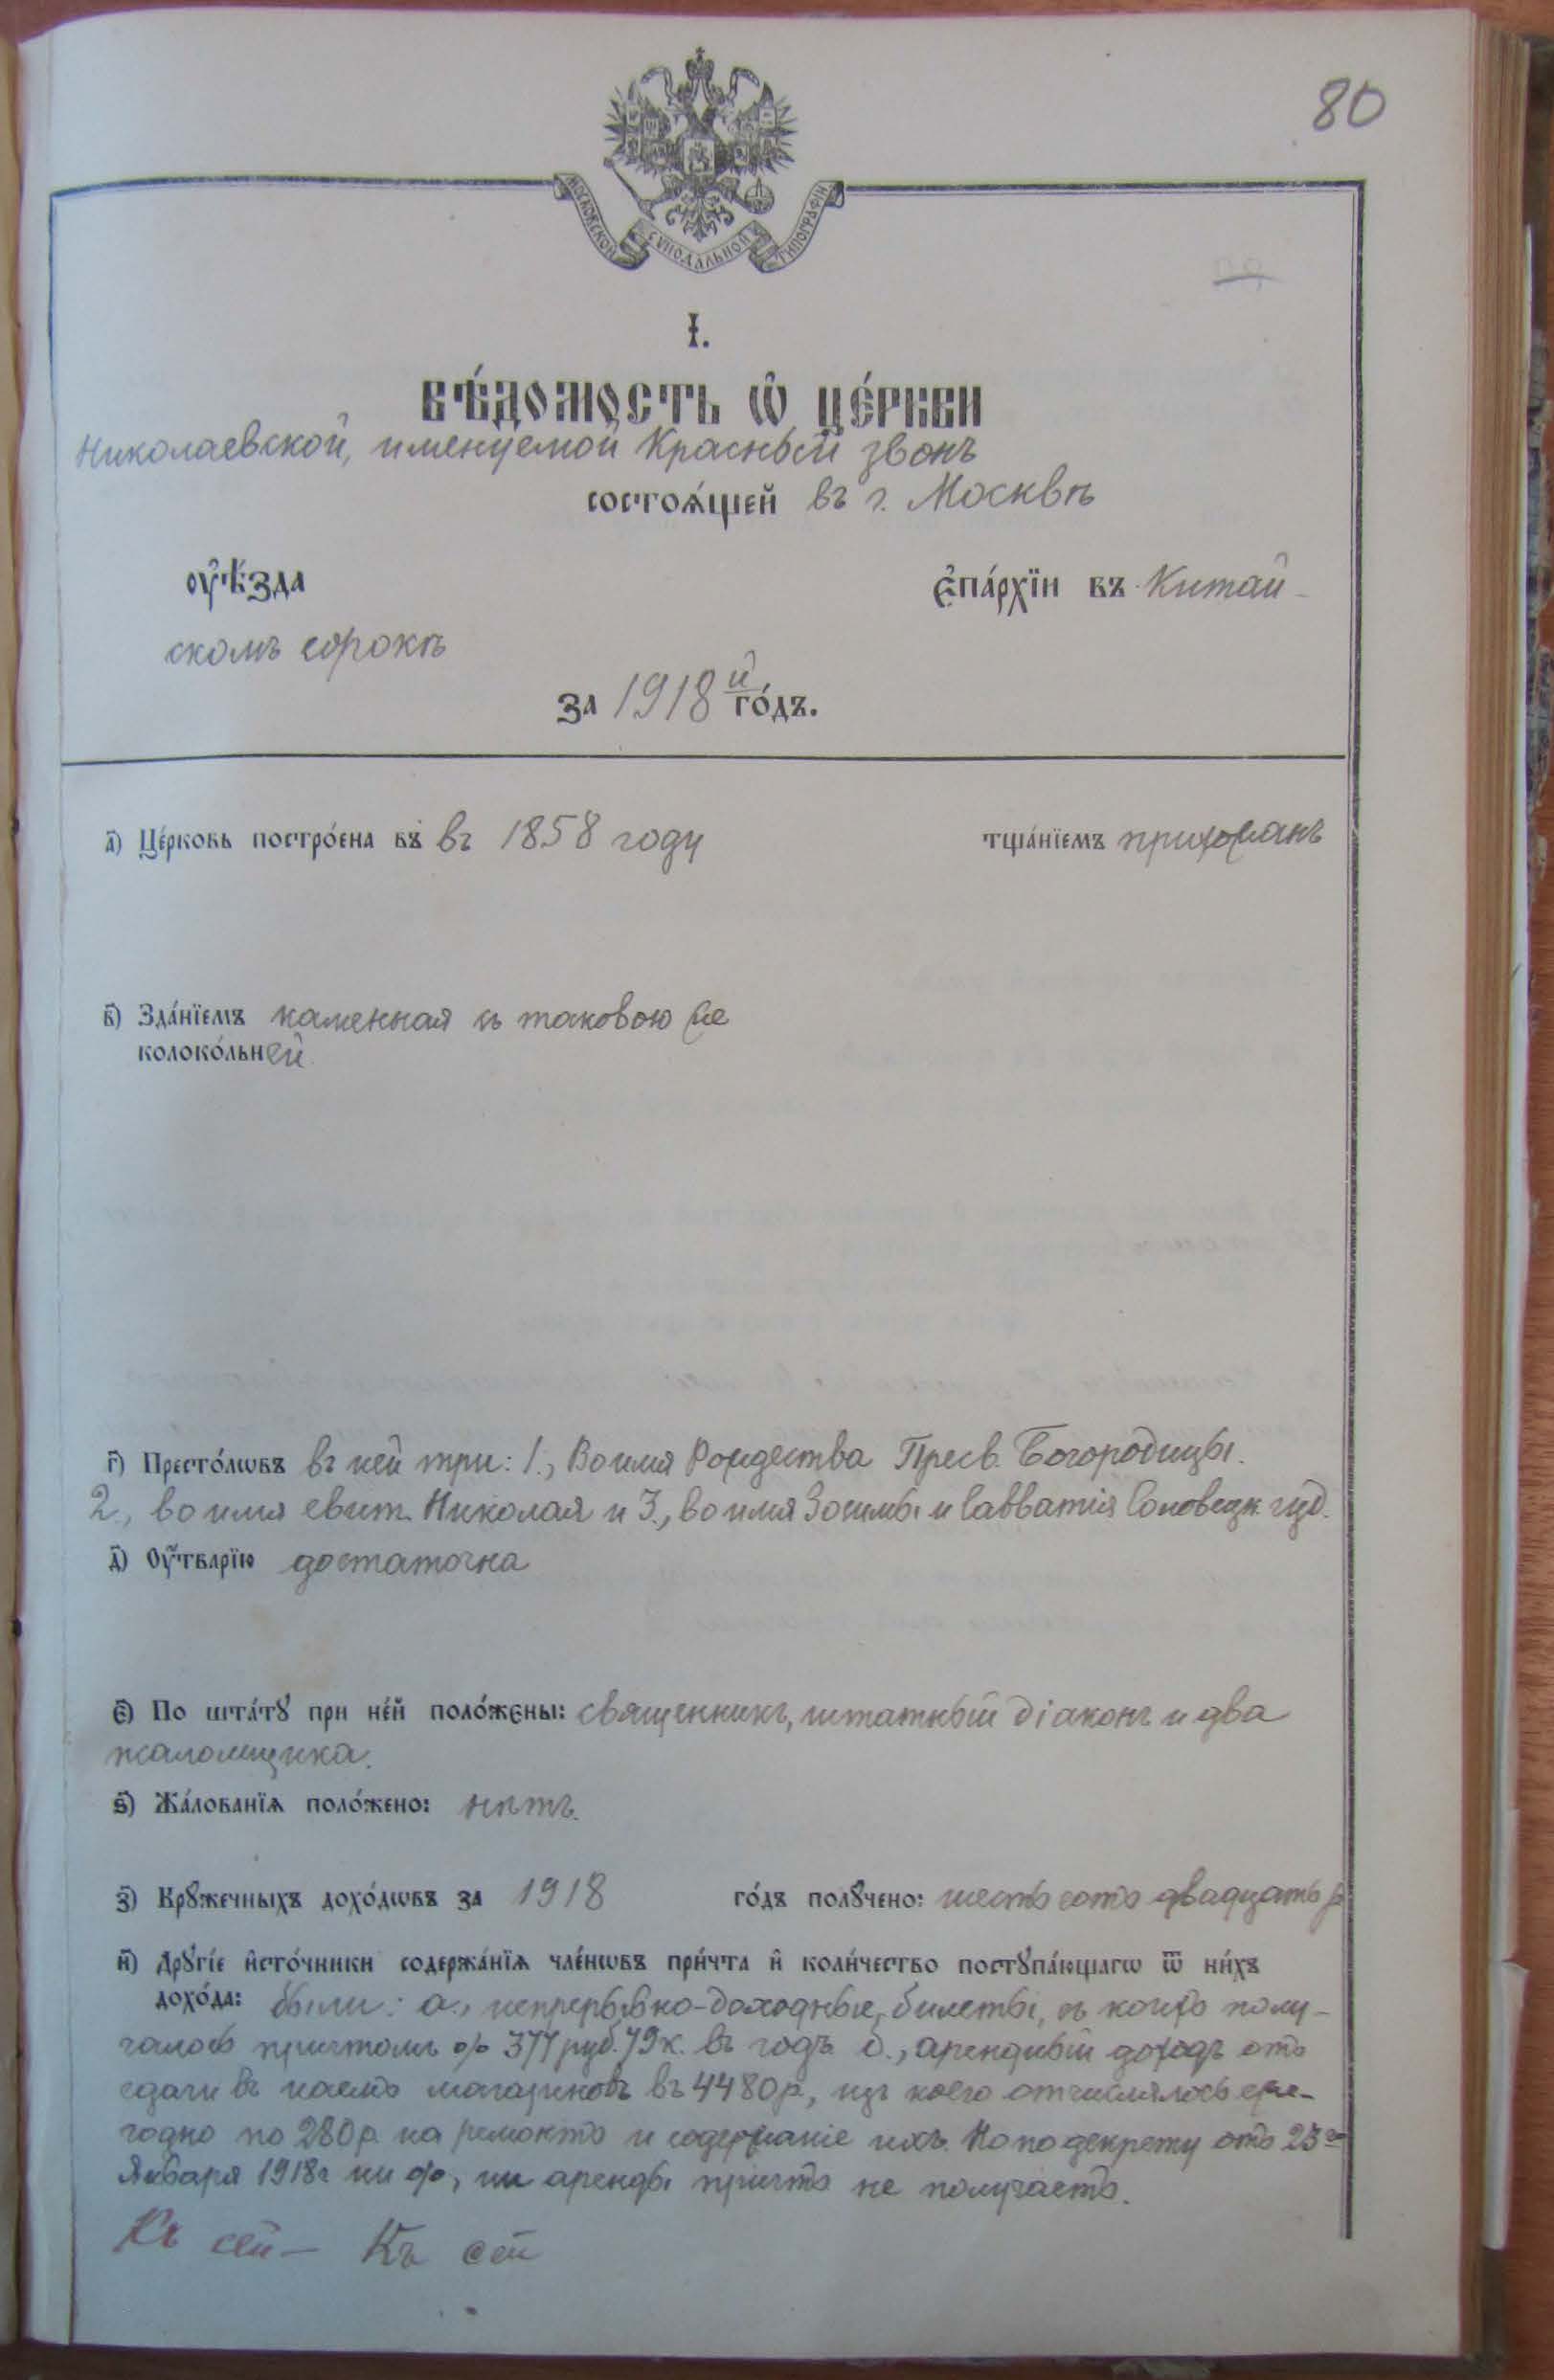 80
МОСКОВСКОЙ СѴНОДАЛЬНОЙ ТИПОГРАФІИ
І.
ВѢ́ДОМОСТЬ Ѡ҆ ЦЕ́РКВИ
Николаевской, именуемой Красный звонъ
состоѧ́щей въ г. Москвѣ
ᲂу҆ѣ́зда є҆па́рхїи въ Китай-
скомъ сорокѣ
за 1918й го́дъ.
а҃) Це́рковь постро́ена въ въ 1858 году тща́нїемъ прихожанъ
в҃) Зда́нїемъ каменная съ таковою же
колоко́льней
г҃) Престо́лѡвъ въ ней три: 1., Во имя Рождества Пресв. Богородицы.
2., во имя свят. Николая и 3., во имя Зосимы и Савватія Соловецк. чуд.
д҃) Оу҆́тварїю достаточна
є҃) По шта́тꙋ при не́й поло́жены: священникъ, штатный діаконъ и два
псаломщика.
ѕ҃) Жа́лованїѧ поло́жено: нѣтъ.
з҃) Крꙋ́жечныхъ дохо́дѡвъ за 1918 го́дъ полꙋ́чено: шестьсотъ двадцать р
и҃) Дрꙋгі́е и҆сто́чники содержа́нїѧ чле́нѡвъ при́чта и҆ коли́чество постꙋпа́ющагѡ ѿ ни́хъ
дохо́да: были: а., непрерывно-доходные билеты, съ коихъ полу-
чалось причтомъ % 377 руб. 79 к. въ годъ б., арендный доходъ отъ
сдачи въ наемъ магазиновъ въ 4480 р., изъ коего отчислялось еже-
годно по 280 р. на ремонтъ и содержаніе ихъ. Но по декрету отъ 23го
Января 1918 г ни %, ни аренды причтъ не получаетъ.
Къ сей – Къ сей